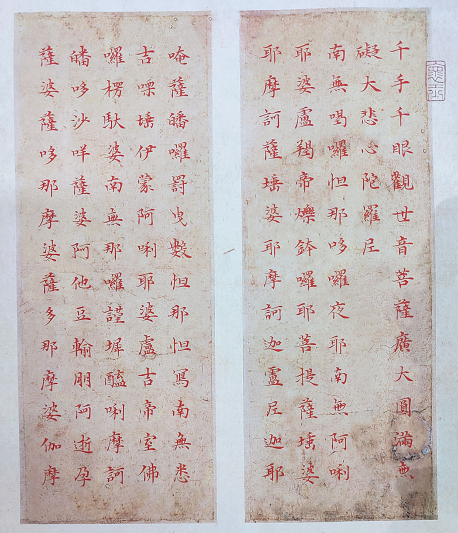 千手千眼觀世音菩薩廣大圓滿無
礙大悲心陀羅尼
南無喝囉怛那哆囉夜耶南無阿唎
耶婆盧羯帝爍鉢囉耶菩提薩埵婆
耶摩訶薩埵婆耶摩訶迦盧尼迦耶
唵薩皤囉罰曳數怛那怛寫南無悉
吉嘌埵伊蒙阿唎耶婆盧吉帝室佛
囉楞馱婆南無那囉謹墀醯唎摩訶
皤哆沙咩薩婆阿他豆輸朋阿逝孕
薩婆薩哆那摩婆薩多那摩婆伽摩